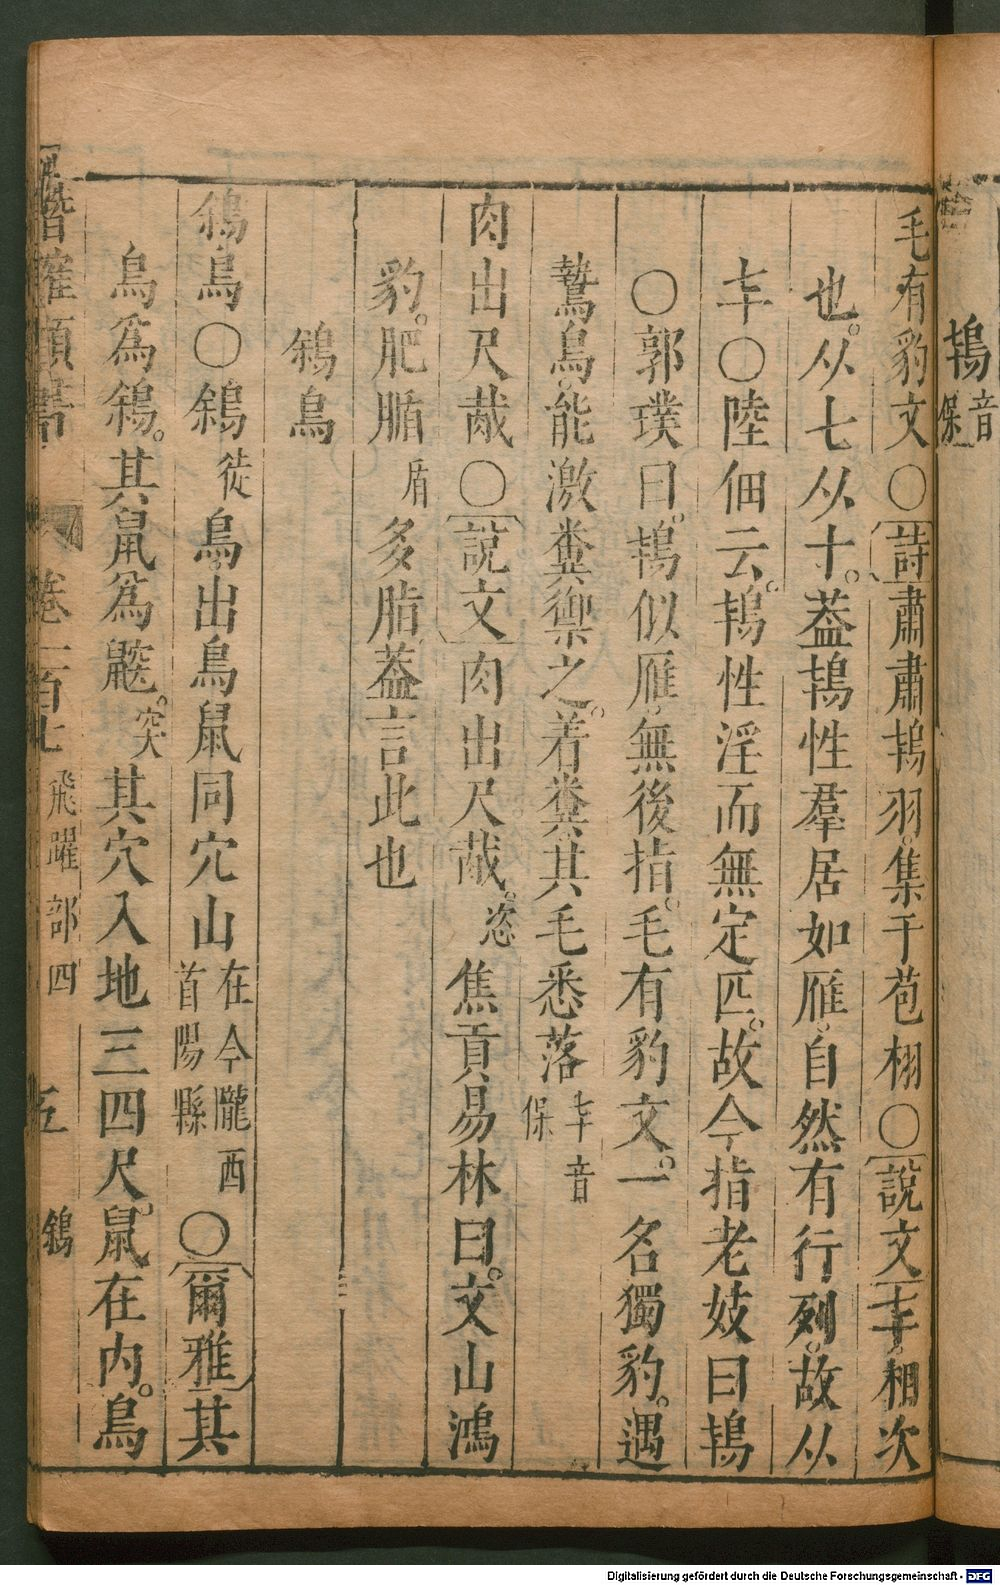 鴇音保
毛有豹文○詩肅肅鴇羽。集于苞栩○說文𠤏。相次
也。从七从十。葢鴇性羣居如雁。自然有行列。故从
𠤏○陸佃云。鴇性淫而無定匹。故今指老妓曰鴇
○郭璞曰。鴇似雁。無後指。毛有豹文。一名獨豹。遇
鷙鳥。能激糞禦之。着糞。其毛悉落𠤏音保
肉出尺胾○說文肉出尺胾。恣焦貢易林曰。文山鴻
豹。肥腯盾多脂。葢言此也
鵌鳥
鵌鳥○鵌徒鳥。出鳥鼠同穴山在今隴西首陽縣○爾雅其
鳥爲鵌。其鼠爲鼵。突其穴入地三四尺。鼠在內。鳥
潛確類書
卷一百七
飛躍部四
五
鵌
Digitalisierung gefördert durch die Deutsche Forschungsgemeinschaft - DFG